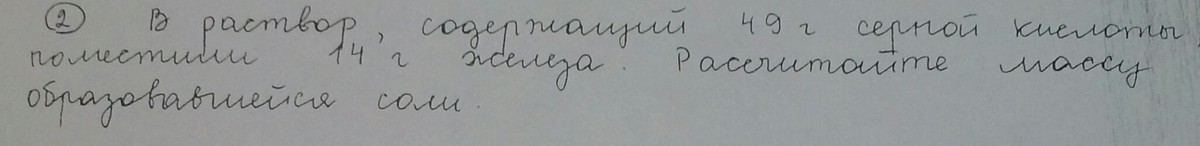 ② В раствор, содержащий 49 г серной кислоты,
поместили 14 г железа. Рассчитайте массу
образовавшейся соли.